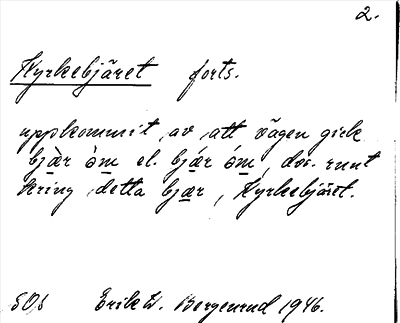 2.
Kyrkebjäret forts.
uppkommit av att vägen gick
bjàr òm el. bjár óm, dvs. runt
kring detta bjär, Kyrkebjäret.
Erik W. Bergenrud 1946.